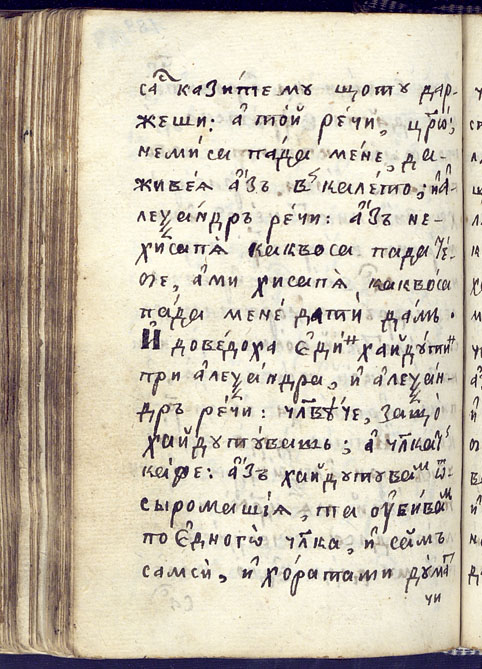 са҃ казите му що ту дар-
жеши: а҆ то́й ре́чи, цр҃ю;
не ми са пада мене, да-
живеѧ а҆́зъ в калето; и҆ а҆-
леѯа́ндръ ре́чи: а҆́зъ не-
хи са пѧ̀ какво са пада те-
бе, а҆ ми хи са пѧ̀ какво са
па́да мене да ти да́мъ.
И҆ доведоха є҆ди́н хайдутин
при а҆леѯа́ндра, и҆ а҆леѯа́н-
дръ ре́чи: чл҃вѹ́че, защо̀
хайдутувашъ; а҆ чл҃ка
каже: а҆́зъ хайдутувам ѿ
сыромашїѧ, та ѹ҆бивам
по є҆дного̀ чл҃ка, и҆ са́мъ
самси̇̀, и҆ хо́рат ами дума
чи